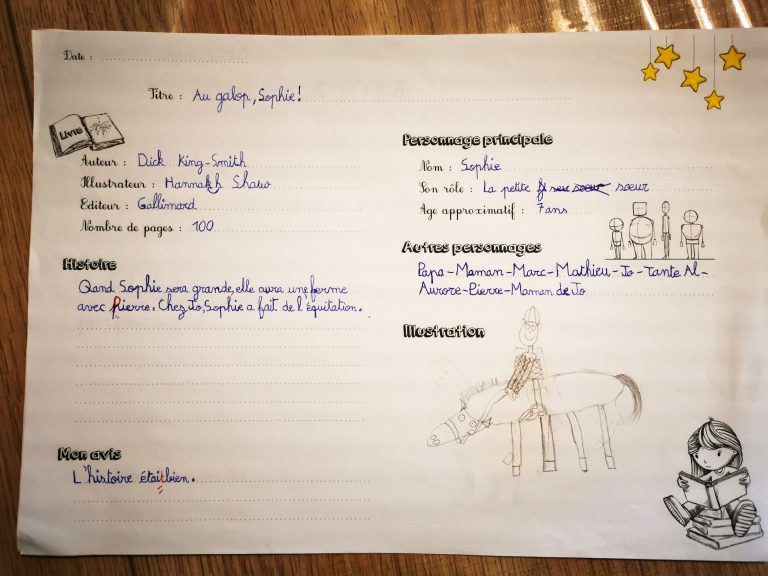 Date :
Titre : Au galop, Sophie !
LIVRE
Auteur : Dick King-Smith
Illustrateur : Hannah Shaw
Editeur : Gallimard
Nombre de pages : 100
Histoire
Qand Sophie sera grande, elle aura une ferme
avec Pierre. Chez Jo, Sophie a fait de l'équitation.
Mon avis
L'histoire était bien.
Personnage principale
Nom : Sophie
Son rôle : La petite sœur
Age approximatif : 7 ans
Autres personnages
Papa - Maman - Marc - Mathieu - Jo - Tante Al -
Aurore - Pierre - Maman de Jo
Illustration